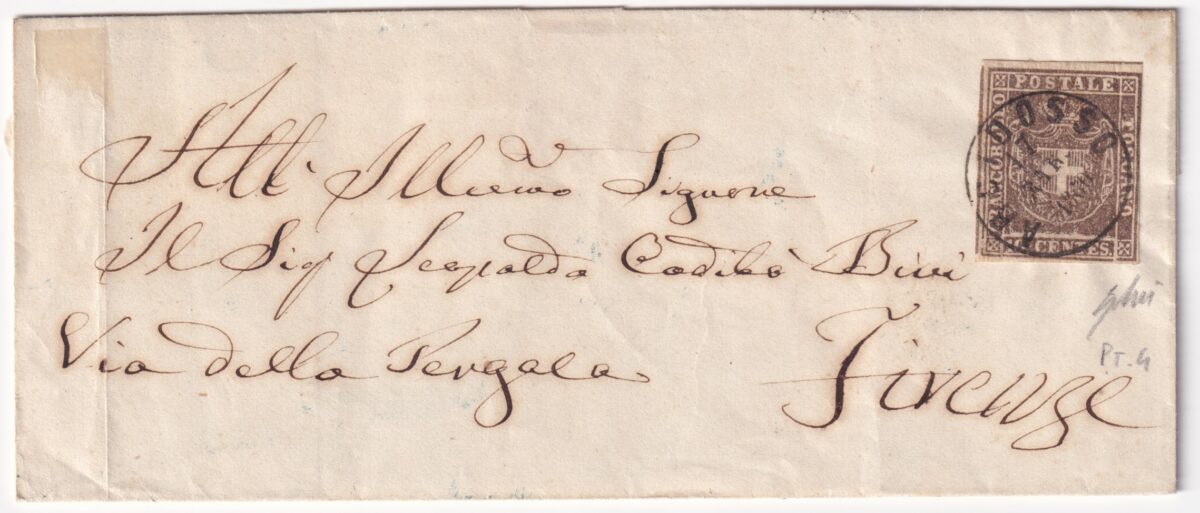 All' Illmo Signore
Il Sig Leopoldo Bini
Via della Pergola
Firenze
FRANCOBOLLO
POSTALE
TOSCANO
CENTES.
ARCIDOSSO
17
P.T. 4